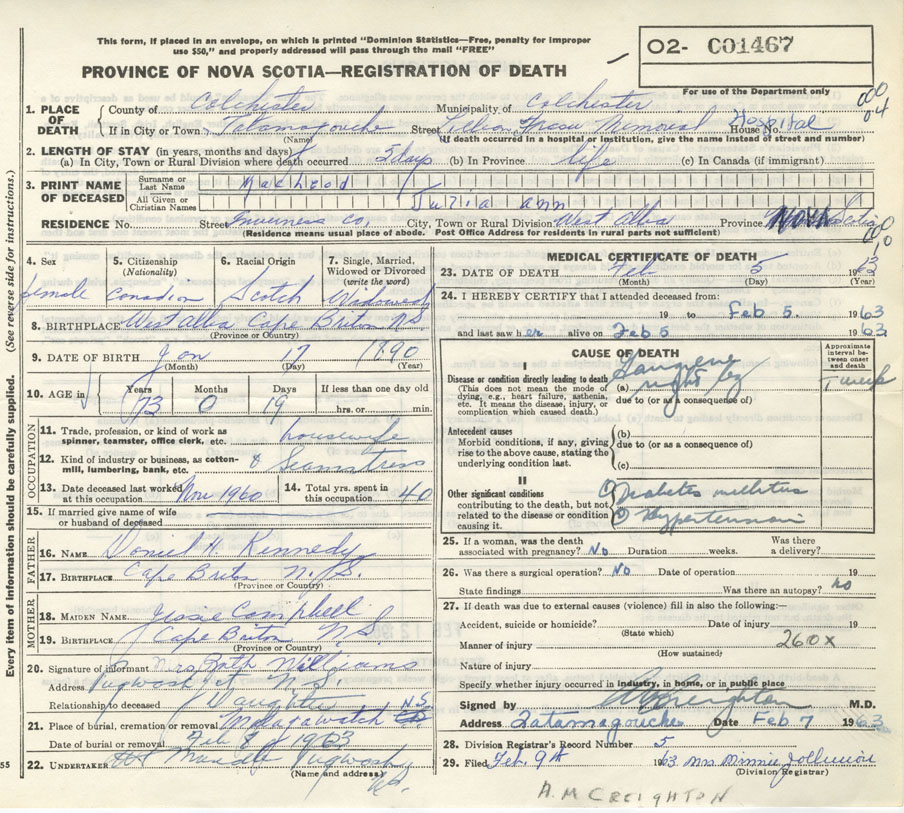 This form, if placed in an envelope, on which is printed "Dominion Statistics—Free, penalty for improper
use $50," and properly addressed will pass through the mail "FREE"
O2- C01467
PROVINCE OF NOVA SCOTIA—REGISTRATION OF DEATH
For use of the Department only
1. PLACE OF DEATH
County of Colchester Municipality of Colchester
If in City or Town Tatamagouche Street Memorial Hospital House No.
(Name) (If death occurred in a hospital or institution, give the name instead of street and number)
2. LENGTH OF STAY (in years, months and days)
(a) In City, Town or Rural Division where death occurred 5 days (b) In Province life (c) In Canada (if immigrant)
3. PRINT NAME OF DECEASED
Surname or Last Name MacLeod
All Given or Christian Names Julia ann
RESIDENCE No. Street Inverness Co, City, Town or Rural Division West Alba Province NOVA Scotia
(Residence means usual place of abode. Post Office Address for residents in rural parts not sufficient)
(See reverse side for instructions.)
Every item of information should be carefully supplied.
4. Sex female
5. Citizenship (Nationality) Canadian
6. Racial Origin Scotch
7. Single, Married, Widowed or Divorced (write the word) Widowed
8. BIRTHPLACE West Alba Cape Briton N.S
(Province or Country)
9. DATE OF BIRTH Jan 17 1890
(Month) (Day) (Year)
10. AGE in Years 73 Months 0 Days 19 If less than one day old
hrs. or min.
OCCUPATION
11. Trade, profession, or kind of work as
spinner, teamster, office clerk, etc. housewife
12. Kind of industry or business, as cotton-
mill, lumbering, bank, etc. & Seamstress
13. Date deceased last worked at this occupation Nov 1960
14. Total yrs. spent in this occupation 40
15. If married give name of wife
or husband of deceased
FATHER
16. NAME Daniel H. Kennedy
17. BIRTHPLACE Cape Briton N.S.
(Province or Country)
MOTHER
18. MAIDEN NAME Jessie Campbell
19. BIRTHPLACE Cape Briton N S
(Province or Country)
20. Signature of informant Mrs Ruth Williams
Address Pugwash N.S.
Relationship to deceased Daughter
21. Place of burial, cremation or removal Malagawatch N.S
Date of burial or removal Feb 8 1963
22. UNDERTAKER Pugwash N.S.
(Name and address)
55
MEDICAL CERTIFICATE OF DEATH
23. DATE OF DEATH Feb 5 1963
(Month) (Day) (Year)
24. I HEREBY CERTIFY that I attended deceased from:
19 to Feb 5. 1963
and last saw her alive on Feb 5 1963
CAUSE OF DEATH
Approximate interval between onset and death
I
Disease or condition directly leading to death
(This does not mean the mode of
dying, e.g., heart failure, asthenia,
etc. It means the disease, injury, or
complication which caused death.)
(a) Gangrene right leg 1 week
due to (or as consequence of)
Antecedent causes
Morbid conditions, if any, giving
rise to the above cause, stating the
underlying condition last.
(b)
due to (or as a consequence of)
(c)
II
Other significant conditions
contributing to the death, but not
related to the disease or condition
causing it.
① Diabetes mellitus
② Hypertension
25. If a woman, was the death
associated with pregnancy? No Duration weeks. Was there a delivery?
26. Was there a surgical operation? No Date of operation 19
State findings Was there an autopsy? No
27. If death was due to external causes (violence) fill in also the following:—
Accident, suicide or homicide? Date of injury 19
(State which)
Manner of injury 260x
(How sustained)
Nature of injury
Specify whether injury occurred in industry, in home, or in public place
Signed by A M Creighton M.D.
Address Tatamagouche Date Feb 7 1963
28. Division Registrar's Record Number 5
29. Filed Feb. 9th 1963 Mrs Minnie
(Division Registrar)
A. M CREIGHTON